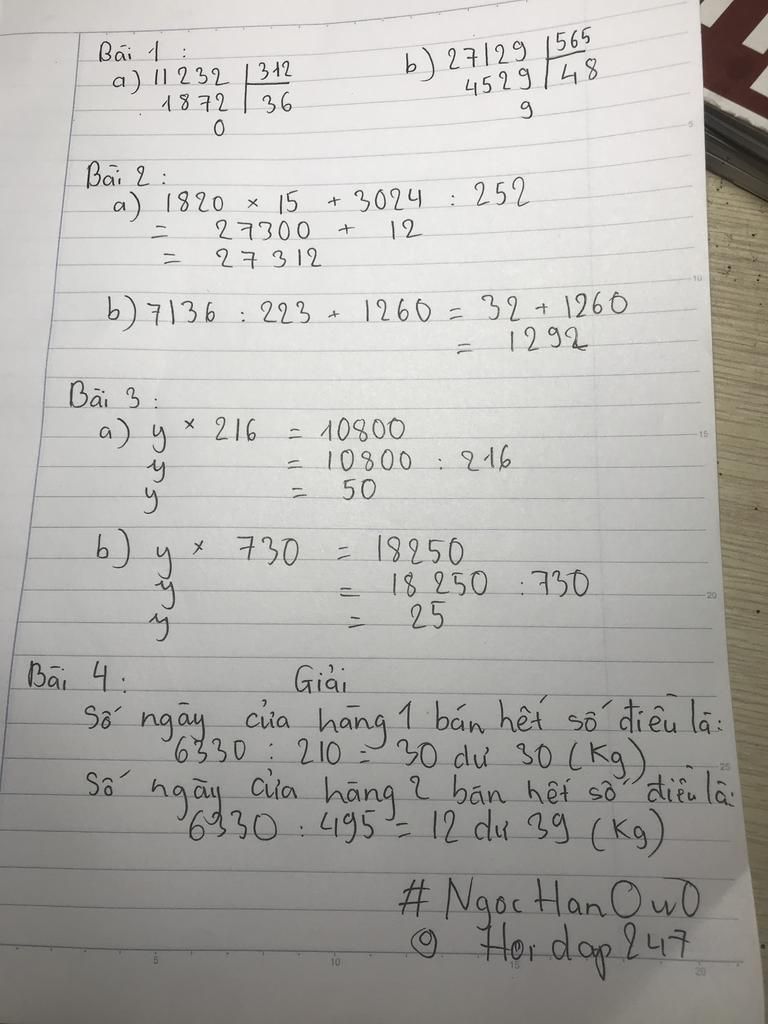 Bài 1 :
a) 11232 | 312
1872 | 36
0
b) 27129 | 565
4529 | 48
9
Bài 2 :
a) 1820 × 15 + 3024 : 252
= 27300 + 12
= 27312
b) 7136 : 223 + 1260 = 32 + 1260
= 1292
Bài 3 :
a) y × 216 = 10800
y = 10800 : 216
y = 50
b) y × 730 = 18250
y = 18250 : 730
y = 25
Bài 4 : Giải
Số ngày cửa hàng 1 bán hết số điều là:
6330 : 210 = 30 dư 30 (Kg)
Số ngày cửa hàng 2 bán hết số điều là:
6330 : 495 = 12 dư 39 (Kg)
# NgocHanOwO
@ Hoidap247
5
10
15
20
25
5
10
15
20